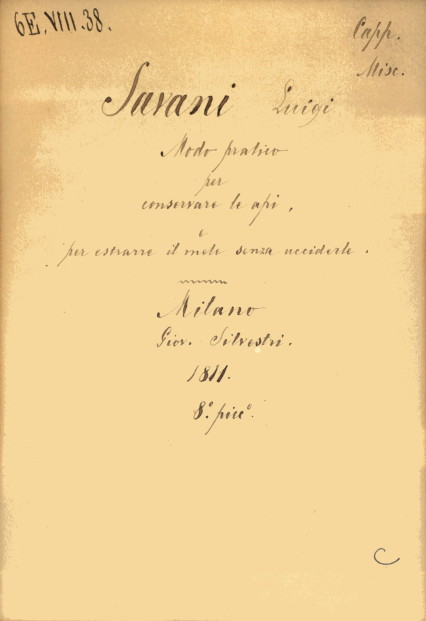 6E.VIII.38.
Capp.
Misc.
Savani Luigi
Modo pratico
per
conservare le api,
e
per estrarre il mele senza ucciderle.
Milano
Giov. Silvestri.
1811.
8.° picc.°
C